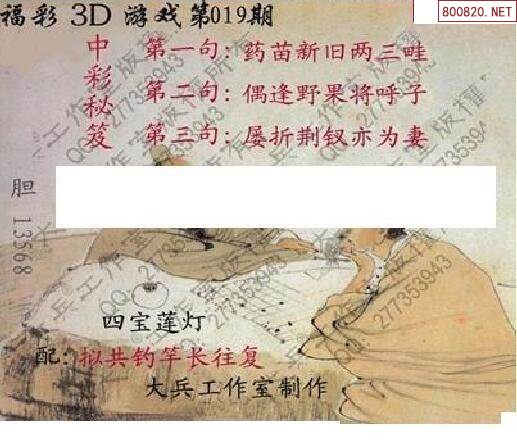 福彩 3D 游戏第019期
800820.NET
中彩秘笈
第一句：药苗新旧两三畦
第二句：偶逢野果将呼子
第三句：屡折荆钗亦为妻
胆 13568
四宝莲灯
配：拟共钓竿长往复
大兵工作室制作
大兵工作室版权所有
QQ:277353943